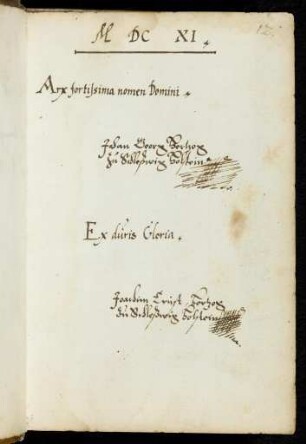 M DC XI.
Arx fortissima nomen Domini.
Johan Georg Hertzog
zu Schleswig Holstein
Ex duris Gloria.
Joachim Ernst Hertzog
zu Schleswig Holstein